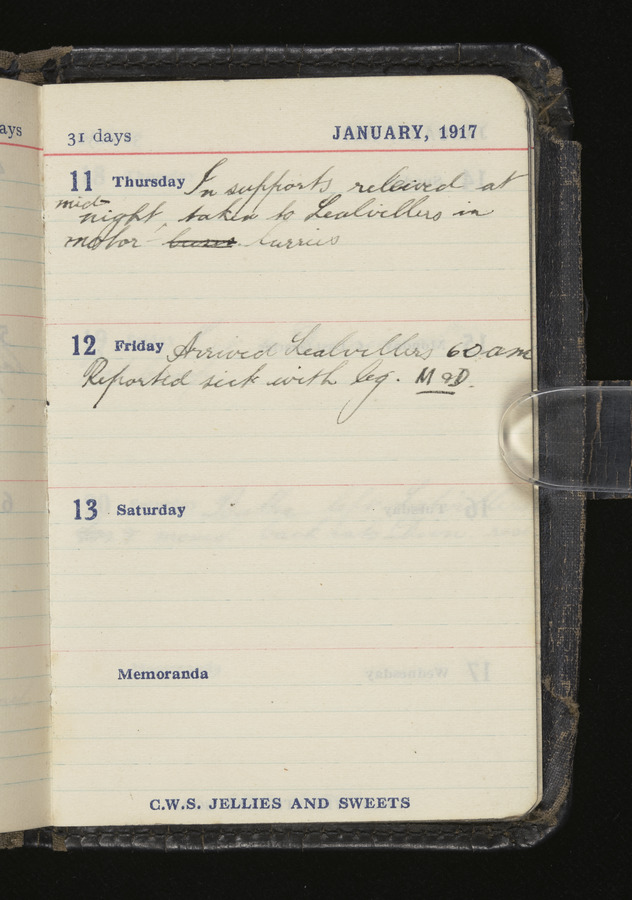 ays
31 days JANUARY, 1917
11 Thursday In supports relieved at
mid-
night, taken to Lealvillers in
motor buses lurries
12 Friday Arrived Lealvillers 6 a m
Reported sick with leg. M & D.
13 Saturday
Memoranda
C.W.S. JELLIES AND SWEETS